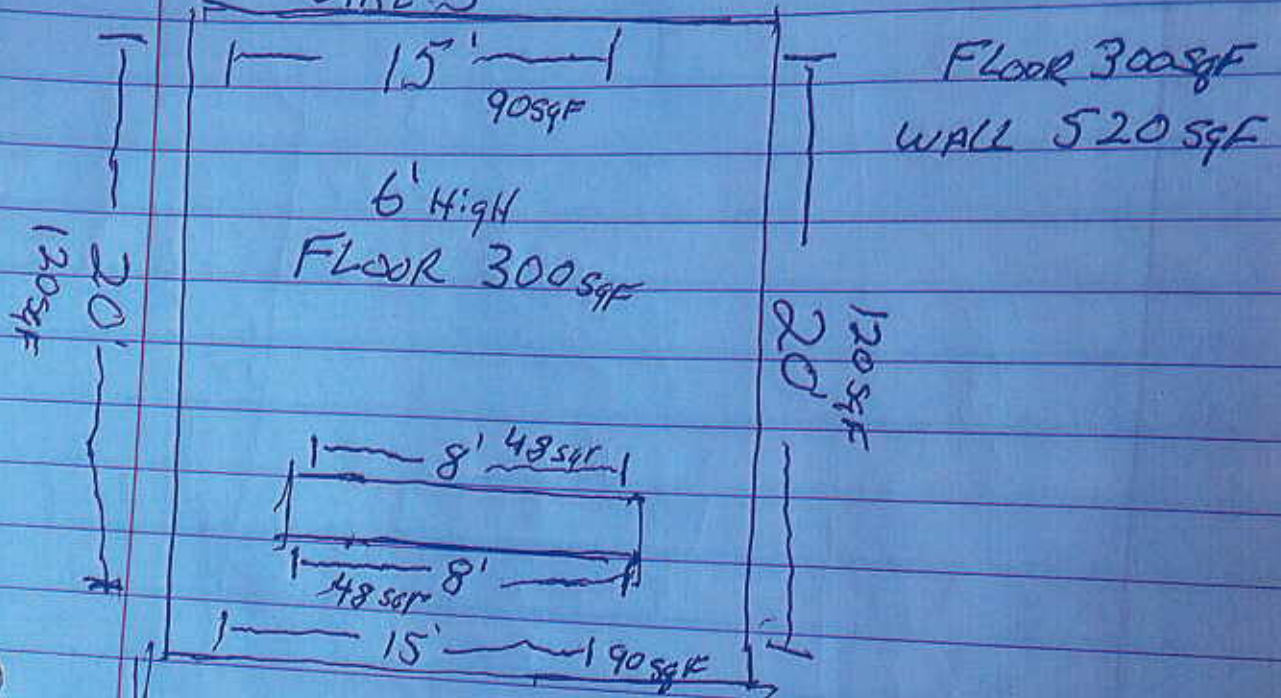 15'
90SqF
FLOOR 300SqF
WALL 520 SqF
6' HigH
FLOOR 300SqF
20'
120SqF
20'
120SqF
8' 48sqF
8'
48 sqF
15' 90SqF